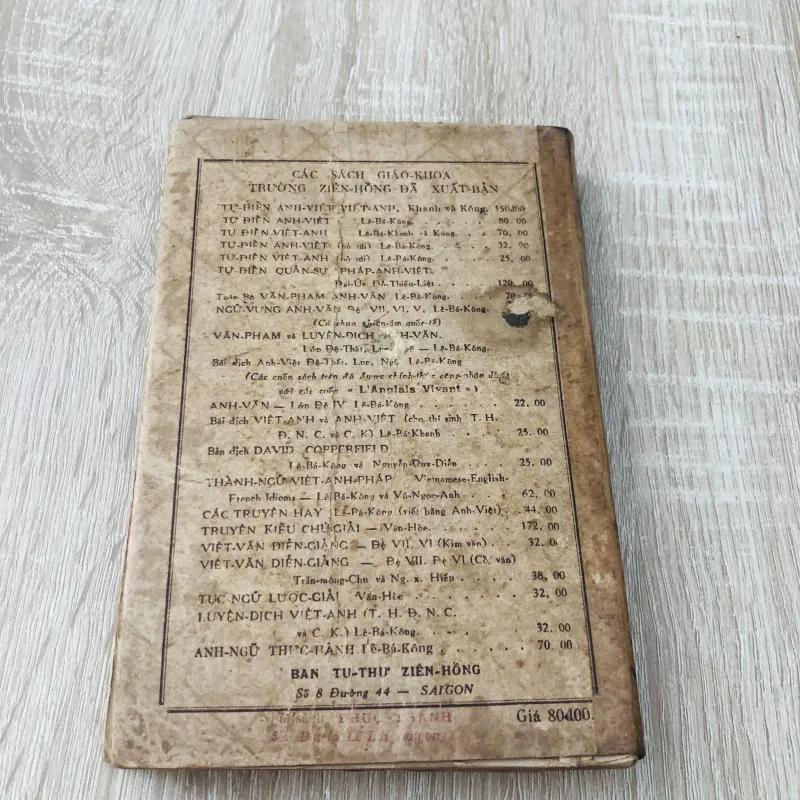 CÁC SÁCH GIÁO-KHOA
TRƯỜNG ZIÊN-HỒNG ĐÃ XUẤT-BẢN
TỰ-ĐIỂN ANH-VIỆT VIỆT-ANH, Khanh và Kông. 150đ00
TỰ ĐIỂN ANH-VIỆT Lê-Bá-Kông. . . . . 80. 00
TỰ ĐIỂN VIỆT-ANH Lê-Bá-Khanh và Kông. . . 70, 00
TỰ-ĐIỂN ANH-VIỆT (bỏ túi) Lê-Bá-Kông. . . . 32, 00
TỰ-ĐIỂN VIỆT-ANH (bỏ túi) Lê-Bá-Kông. . . . 25, 00
TỰ-ĐIỂN QUÂN-SỰ PHÁP-ANH-VIỆT.
Đại-Úy Đỗ-Thiếu-Liệt . . . . 120, 00
Toàn Bộ VĂN-PHẠM ANH-VĂN Lê-Bá-Kông. . . 70
NGỮ-VỰNG ANH-VĂN Đệ VII, VI, V, Lê-Bá-Kông.
(Có chua phiên-âm quốc-tế)
VĂN-PHẠM và LUYỆN-DỊCH ANH-VĂN.
Lớp Đệ-Thất, Lục, — Lê-Bá-Kông.
Bài dịch Anh-Việt Đệ-Thất, Lục, Ngũ Lê-Bá-Kông
(Các cuốn sách trên đã được chính-thức công-nhận dùng
với các cuốn « L'Anglais Vivant »)
ANH-VĂN — Lớp Đệ IV Lê-Bá-Kông . . . . 22, 00
Bài dịch VIỆT-ANH và ANH-VIỆT (cho thí sinh T. H.
Đ. N. C. và C. K) Lê-Bá-Khanh . . . . 25. 00
Bản dịch DAVID COPPERFIELD
Lê-Bá-Kông và Nguyễn-Duy-Diễn . . . 25. 00
THÀNH-NGỮ VIỆT-ANH-PHÁP Vietnamese-English-
French Idioms — Lê-Bá-Kông và Vũ-Ngọc-Anh . . 62, 00
CÁC TRUYỆN HAY Lê-Bá-Kông (viết bằng Anh-Việt) . . 44, 00
TRUYỆN KIỀU CHÚ-GIẢI — Vân-Hòe. . . . . 172, 00
VIỆT-VĂN DIỄN-GIẢNG — Đệ VII, VI (Kim văn) . . 32. 00
VIỆT-VĂN DIỄN-GIẢNG — Đệ VII. Đệ VI (Cổ văn)
Trần-mộng-Chu và Ng. x. Hiếu . . . . 38, 00
TỤC-NGỮ LƯỢC-GIẢI Vân-Hòe . . . . . 32, 00
LUYỆN-DỊCH VIỆT-ANH (T. H. Đ. N. C.
và C. K.) Lê-Bá-Kông. . . . . 32, 00
ANH-NGỮ THỰC-HÀNH Lê-Bá-Kông . . . . . 70. 00
BAN TU-THƯ ZIÊN-HỒNG
Số 8 Đường 44 — SAIGON
Giá 80đ00.